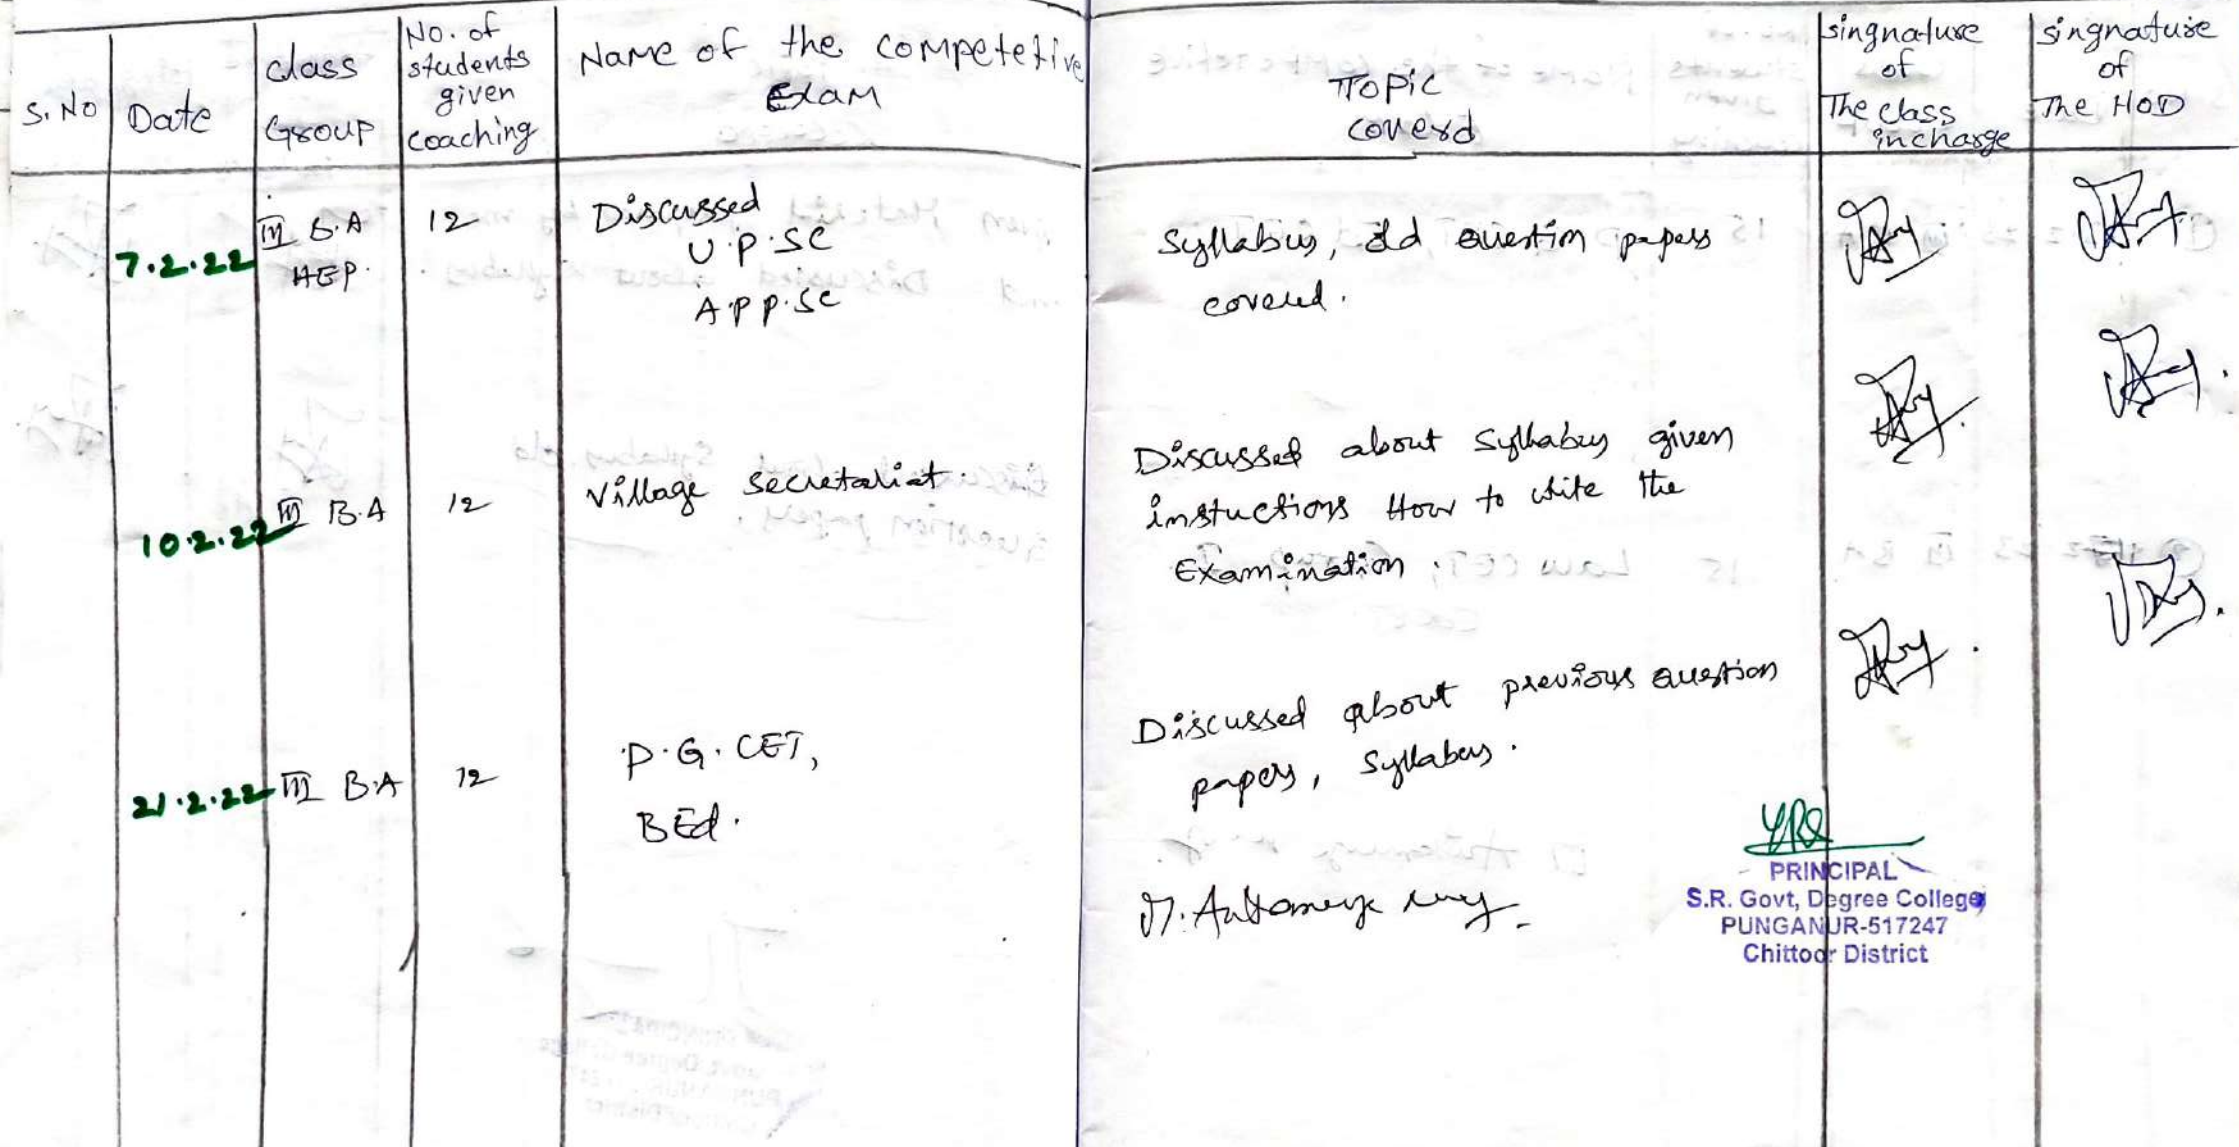 S.No
Date
class
Group
No. of
students
given
coaching
Name of the competetive
Exam
Topic
coverd
singnature
of
The class
incharge
singnature
of
The HOD
7.2.22
III B.A
HEP.
12
Discussed
U.P.SC
A.P.P.SC
Syllabus, old question papers
covered.
10.2.22
III B.A
12
Village secretariat.
Discussed about Syllabus given
instuctions How to write the
Examination.
21.2.22
III B.A
12
P.G. CET,
BEd.
Discussed about previous question
papers, Syllabus.
PRINCIPAL
S.R. Govt, Degree College
PUNGANUR-517247
Chittoor District